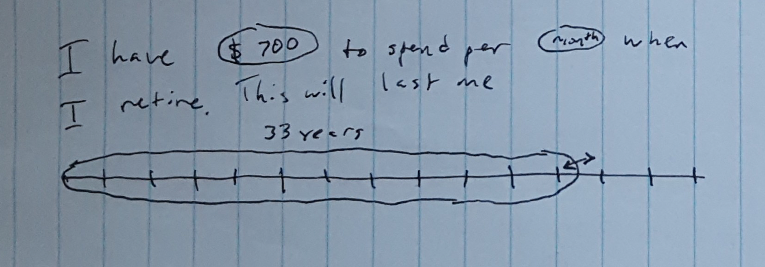 I have $700 to spend per month when
I retire. This will last me
33 years